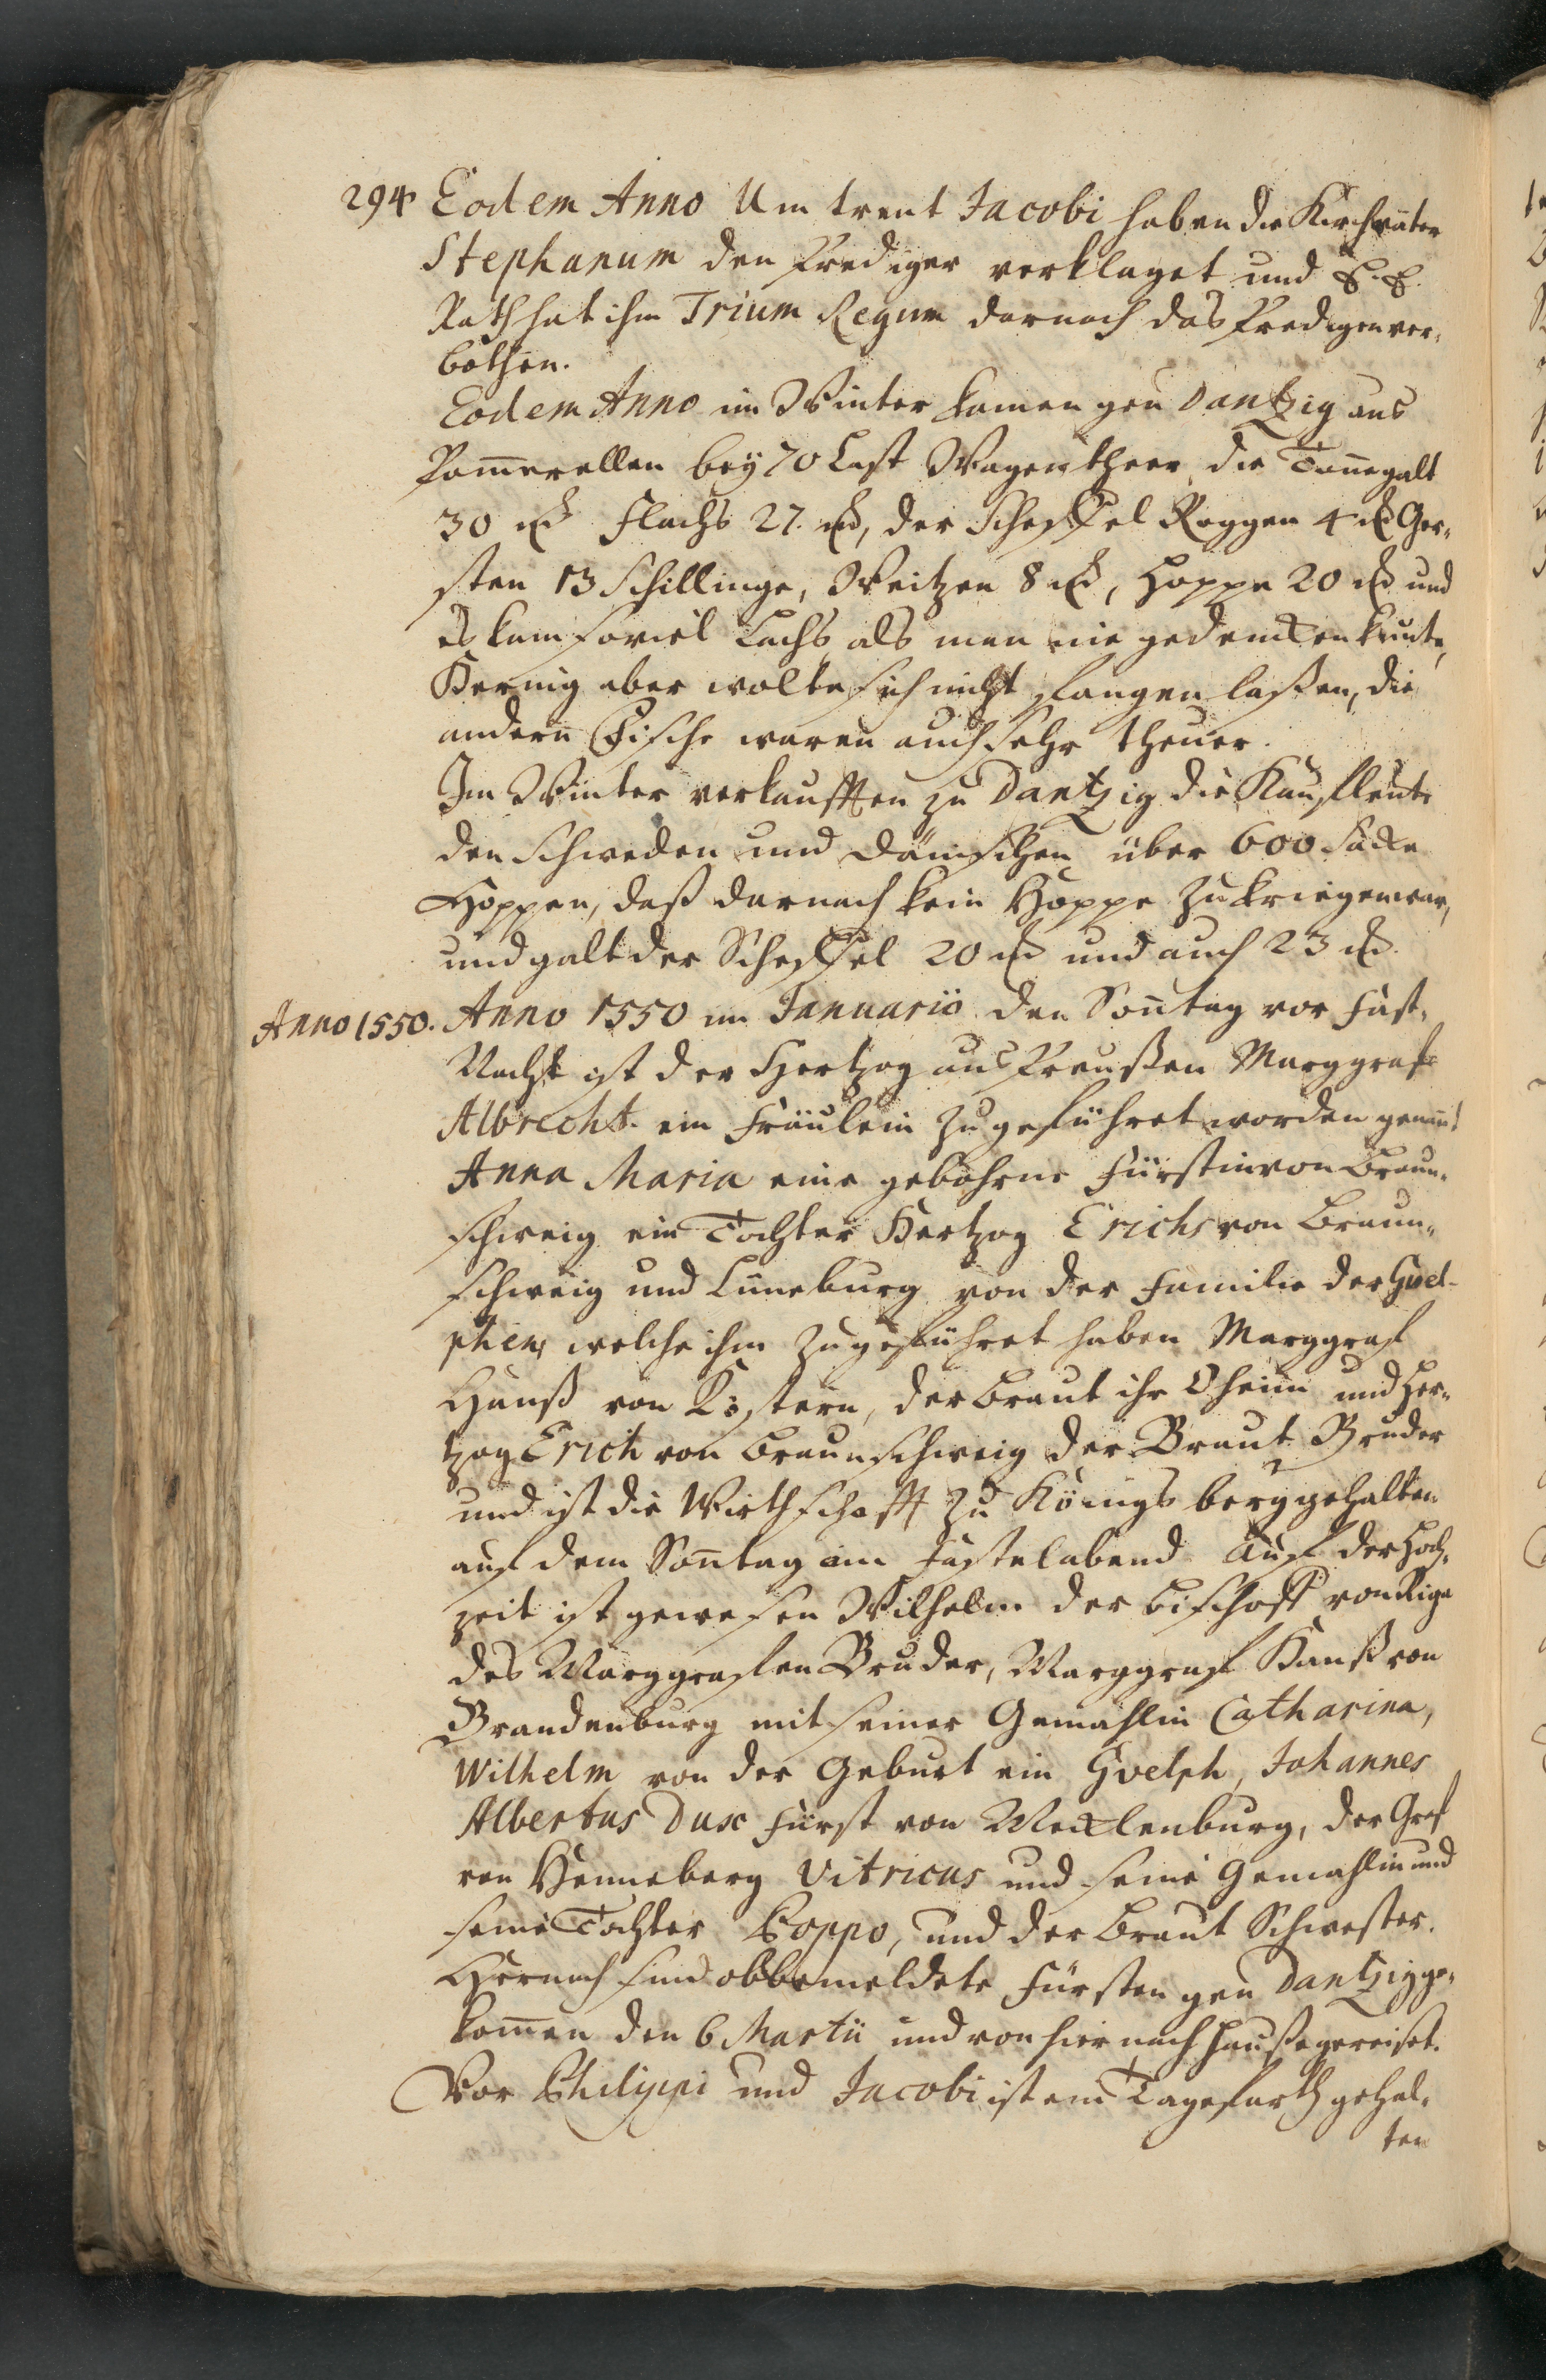 294 Eodem Anno Um trent Jacobi haben die Kirchväter
Stephanum den Prediger verklaget und E. E.
Rath hat ihm Trium Regum darnach das Predigen ver-
bothen.
Eodem Anno im Winter kamen gen Dantzig aus
Pom̄erellen bey 70 Last Wagentheer, die Ton̄e galt
30 Flachs 27. der Scheffel Roggen 4 Ger-
sten 13 Schillinge, Weitzen 8 Hoppe 20 und
es kam soviel Lachs als man nie gedencken kunte,
Hering aber wolte sich nicht fangen laßen, die
andern Fische waren auch sehr theuer.
Im Winter verkaufften zu Dantzig die Kaufleute
den Schweden und Dänischen über 600 Säcke
Hoppen, daß darnach kein Hoppe zu kriegen war,
und galt der Scheffel 20 und auch 23
Anno 1550. Anno 1550 im Januario den Son̄tag vor Fast-
Nacht ist der Hertzog aus Preußen Marggraf
Albrecht. ein Fräulein zugeführet worden genan̄t
Anna Maria eine gebohrne Fürstin von Braun-
schweig ein Tochter Hertzog Erichs von Braun-
schweig und Lüneburg von der Familie der Guel-
phen, welche ihm zugeführet haben Marggraf
Hanß von Küstern, der Braut ihr Oheim und Her-
tzog Erich von Braunschweig der Braut Bruder
und ist die Wirthschafft zu Königsberg gehalten
auf dem Son̄tag am Fastelabend. Auf der Hoch-
zeit ist gewesen Wilhelm der Bischoff von Riga
des Marggrafen Bruder, Marggraf Hanß von
Brandenburg mit seiner Gemahlin Catharina,
Wilhelm von der Geburt ein Gvelph, Johannes
Albertus Dux Fürst von Mecklenburg, der Graf
von Henneberg Vitricus und seine Gemahlin und
seine Tochter Poppo, und der Braut Schwester.
Hernach sind obbemeldete Fürsten gen Dantzig ge-
kom̄en den 6 Martii und von hier nach Hauße gereiset.
Vor Philippi und Jacobi ist ein Tagefarth gehal-
ten